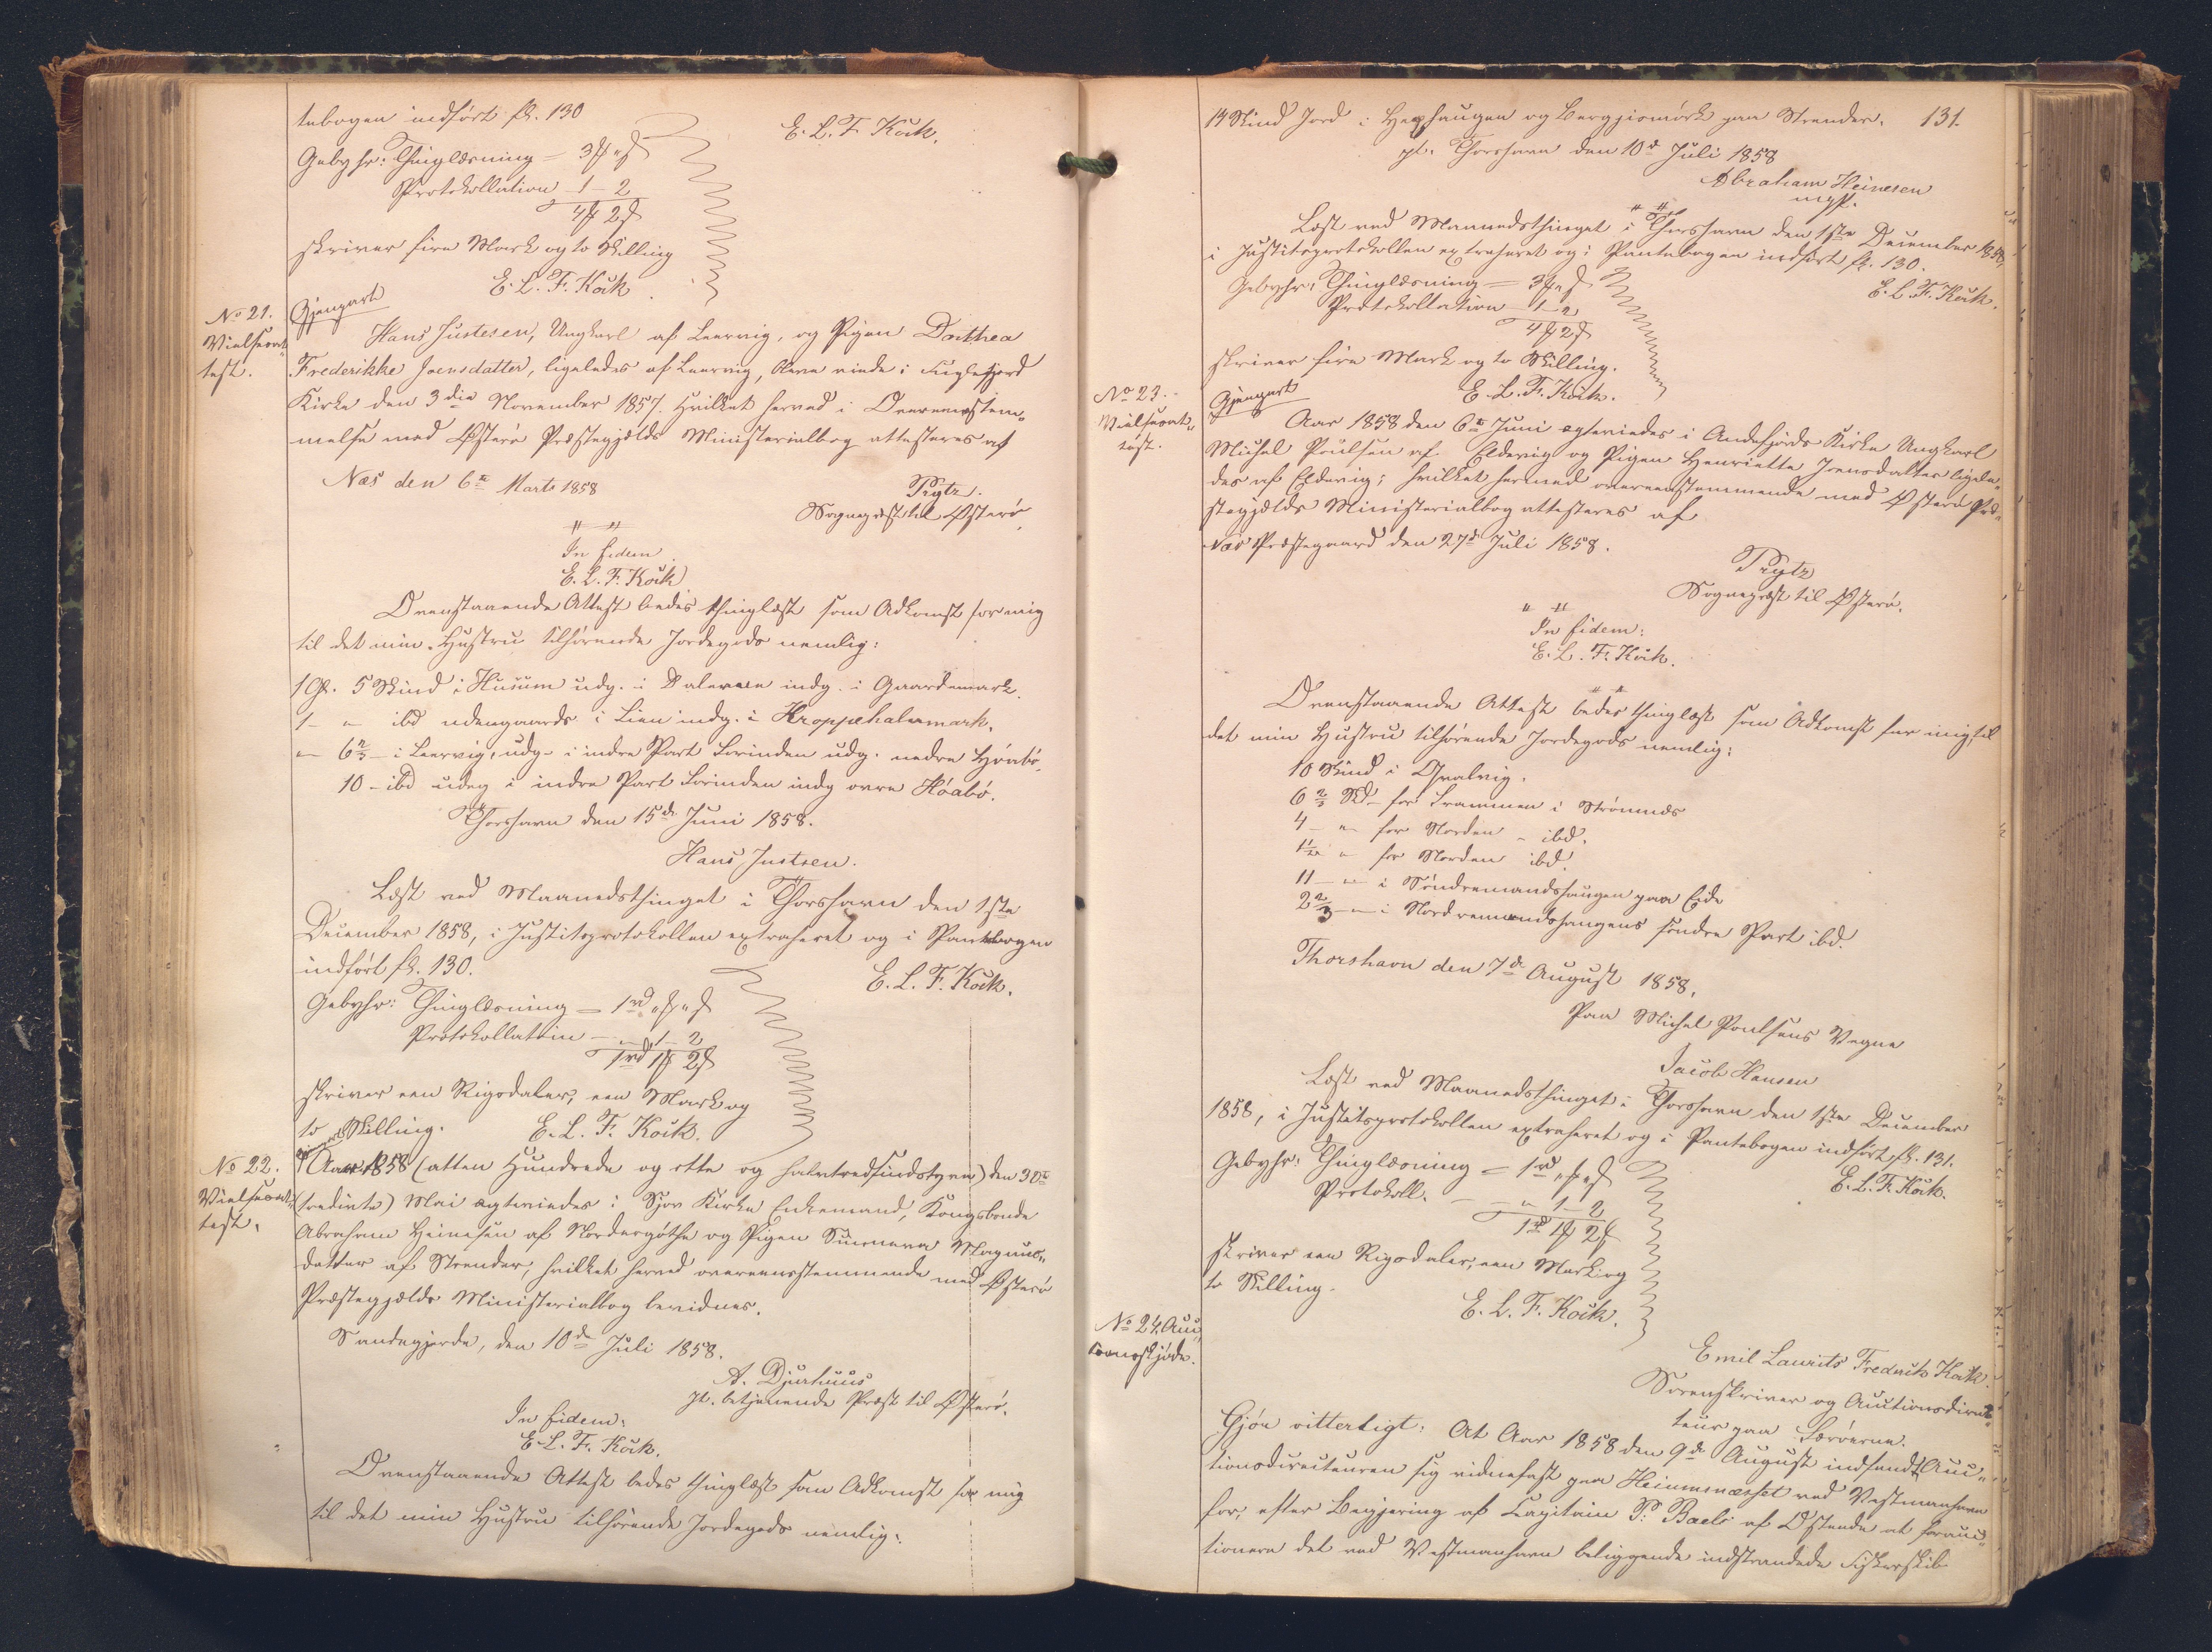 tebogen indført fl. 130
E. L. F. Kock.
Gebyhr: Thinglæsning = 3 ₰ " ß
Protokollation 1 - 2
4 ₰ 2 ß
skriver fire Mark og to Skilling
E. L. F. Kock
No 21.
Vielsesat-
test.
Gjenpart
Hans Justesen, Ungkarl af Leervig, og Pigen Dorthea
Frederikke Joensdatter, ligeledes af Leervig, bleve viede i Fuglefjord
Kirke den 3die November 1857. Hvilket herved i Overeenstem-
melse med Østerø Præstegjælds Ministerialbog attesteres af
Næs den 6te Marts 1858
Prytz.
Sognepræst til Østerø
" "
In fidem
E. L. F. Kock
Ovenstaaende Attest bedes thinglæst som Adkomst for mig
til det min Hustru tilhørende Jordegods nemlig:
1 Gl. 5 Skind i Husum udg. i Daleveen indg. i Gaardemark.
1 - " ibd udengaards i Lien indg. i Kroppehalemark.
" 6 2/3 - i Leervig, udg. i indre Part Forinden udg. nedre Hönbö.
10 - ibd udeg i indre Part Forinden indg ovre Höabö.
Thorshavn den 15de Juni 1858.
Hans Justsen.
Læst ved Maanedsthinget i Thorshavn den 1ste
December 1858, i Justitsprotokollen extraheret og i Pantebogen
indført fl. 130.
E. L. F. Kock.
Gebyhr: Thinglæsning = 1 rd " ₰ " ß
Protokollation - " 1 - 2
1 rd 1 ₰ 2 ß
skriver een Rigsdaler, een Mark og
to Skilling.
E. L. F. Kock.
No 22.
Vielsesat-
test.
Aar 1858 (atten Hundrede og otte og halvtredsindstyve) den 30te
(tredivte) Mai ægteviedes i Sjov Kirke Enkemand, Kongsbonde
Abraham Heinesen af Nordregøthe og Pigen Sunneva Magnus-
datter af Strender, hvilket herved overeensstemmende med Østerø
Præstegjælds Ministerialbog bevidnes.
Sandegjerde, den 10de Juli 1858.
A. Djurhuus
pt. betjenende Præst til Østerø.
In fidem:
E. L. F. Kock.
Ovenstaaende Attest bedes thinglæst som Adkomst for mig
til det min Hustru tilhørende Jordegods nemlig:
131.
14 Skind Jord i Høghaugen og Bergjismörk paa Strender.
pt. Thorshavn den 10de Juli 1858
Abraham Heinesen
mpp.
" "
Læst ved Maanedsthinget i Thorshavn den 1ste December 1858,
i Justitsprotokollen extraheret og i Pantebogen indført fl. 130.
E. L. F. Kock.
Gebyhr: Thinglæsning = 3 ₰ " ß
Protokollation 1 - 2
4 ₰ 2 ß
skriver fire Mark og to Skilling.
E. L. F. Kock.
No 23.
Vielsesat-
test.
Gjenpart
Aar 1858 den 6te Juni ægteviedes i Andefjords Kirke Ungkarl
Michel Poulsen af Eldevig og Pigen Henriette Joensdatter ligele-
des af Eldevig; hvilket hermed overeensstemmende med Østerø Præ-
stegjælds Ministerialbog attesteres af
Næs Præstegaard den 27de Juli 1858.
Prytz
Sognepræst til Østerø.
" "
In fidem:
E. L. F. Kock.
" "
Ovenstaaende Attest bedes thinglæst som Adkomst for mig til
det min Hustru tilhørende Jordegods nemlig:
10 Skind i Qvalvig.
6 2/3 Skd. for Frammen i Strømnæs
4 - " - for Norden - ibd.
1 1/2 " for Norden ibd.
11 - " - i Söndremandshaugen paa Eide
2 2/3 - " - i Nordremandshaugens søndre Part ibd.
Thorshavn den 7de August 1858.
Paa Michel Poulsens Vegne
Jacob Hansen
Læst ved Maanedsthinget i Thorshavn den 1ste December
1858, i Justitsprotokollen extraheret og i Pantebogen indført fl. 131.
E. L. F. Kock.
Gebyhr: Thinglæsning = 1 rd " ₰ " ß
Protokoll. - - " 1 - 2
1 rd 1 ₰ 2 ß
skriver een Rigsdaler, een Mark og
to Skilling.
E. L. F. Kock.
No 24. Auc-
tionsskjöde.
Emil Laurits Fredrik Kock.
Sorenskriver og Auctionsdirec-
teur paa Færøerne.
Gjör vitterligt: At Aar 1858 den 9de August indfandt Auc-
tionsdirecteuren sig vidnefast paa Heimmnæsset ved Vestmanhavn
for, efter Begjering af Capitain P. Baels af Ostende at forauc-
tionere det ved Vestmanhavn beliggende indstrandede Fiskerskib